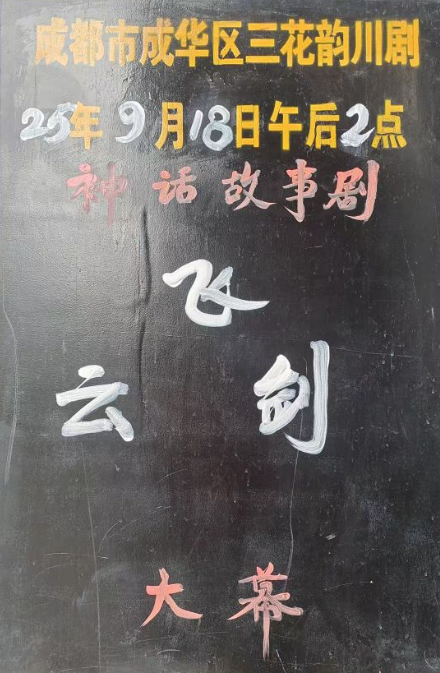 成都市成华区三花韵川剧
25年9月18日午后2点
神话故事剧
飞
云剑
大幕